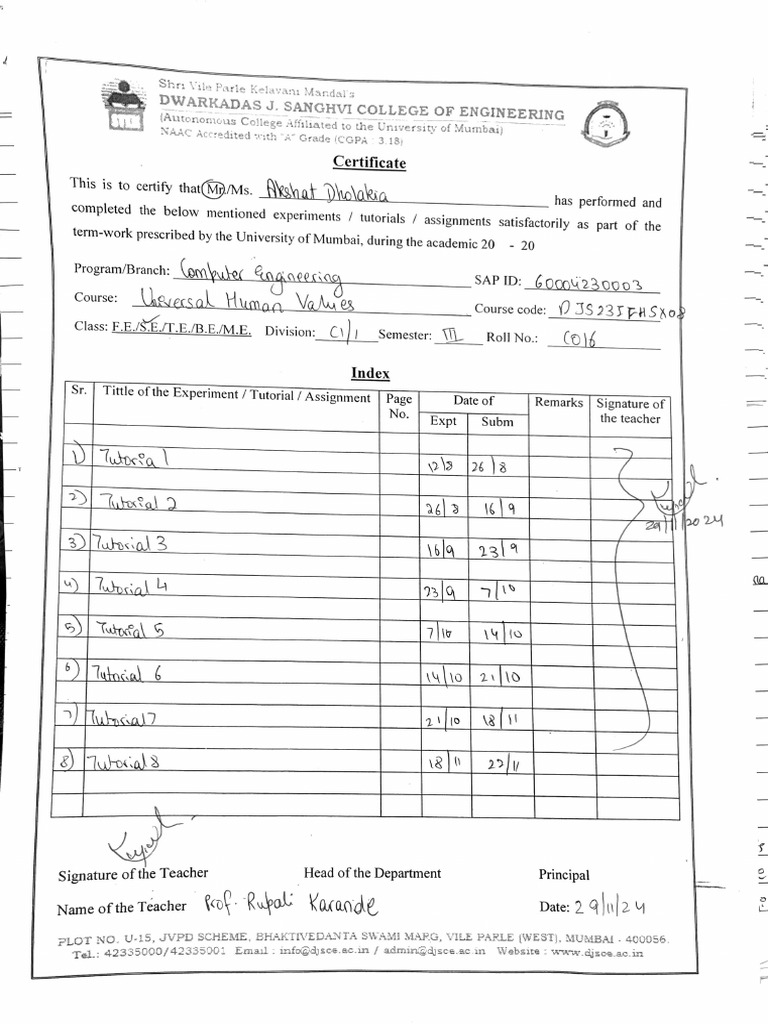 Shri Vile Parle Kelavani Mandal's
DWARKADAS J. SANGHVI COLLEGE OF ENGINEERING
(Autonomous College Affiliated to the University of Mumbai)
NAAC Accredited with "A" Grade (CGPA : 3.18)
Certificate
This is to certify that Mr./Ms. Akshat Dholakia has performed and
completed the below mentioned experiments / tutorials / assignments satisfactorily as part of the
term-work prescribed by the University of Mumbai, during the academic 20 - 20
Program/Branch: Computer Engineering SAP ID: 60004230003
Course: Universal Human Values Course code: DJS23IFHSX08
Class: F.E./S.E./T.E./B.E./M.E. Division: C1/1 Semester: III Roll No.: C016
Index
Sr. Tittle of the Experiment / Tutorial / Assignment Page No. Date of Remarks Signature of the teacher
Expt Subm
1) Tutorial 1 12/8 26/8
2) Tutorial 2 26/8 16/9
3) Tutorial 3 16/9 23/9
4) Tutorial 4 23/9 7/10
5) Tutorial 5 7/10 14/10
6) Tutorial 6 14/10 21/10
7) Tutorial 7 21/10 18/11
8) Tutorial 8 18/11 22/11
29/11/2024
Signature of the Teacher Head of the Department Principal
Name of the Teacher Prof. Rupali Karande Date: 29/11/24
PLOT NO. U-15, JVPD SCHEME, BHAKTIVEDANTA SWAMI MARG, VILE PARLE (WEST), MUMBAI - 400056.
Tel.: 42335000/42335001 Email : info@djsce.ac.in / admin@djsce.ac.in Website : www.djsce.ac.in